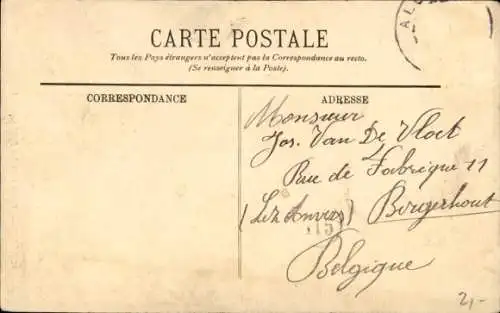 AL
CARTE POSTALE
Tous les Pays étrangers n'acceptent pas la Correspondance au recto.
(Se renseigner à la Poste).
CORRESPONDANCE
ADRESSE
Monsieur
Jos. Van De Vloet
Rue de Fabrique 11
(Lez Anvers) Borgerhout
115
Belgique
2,-